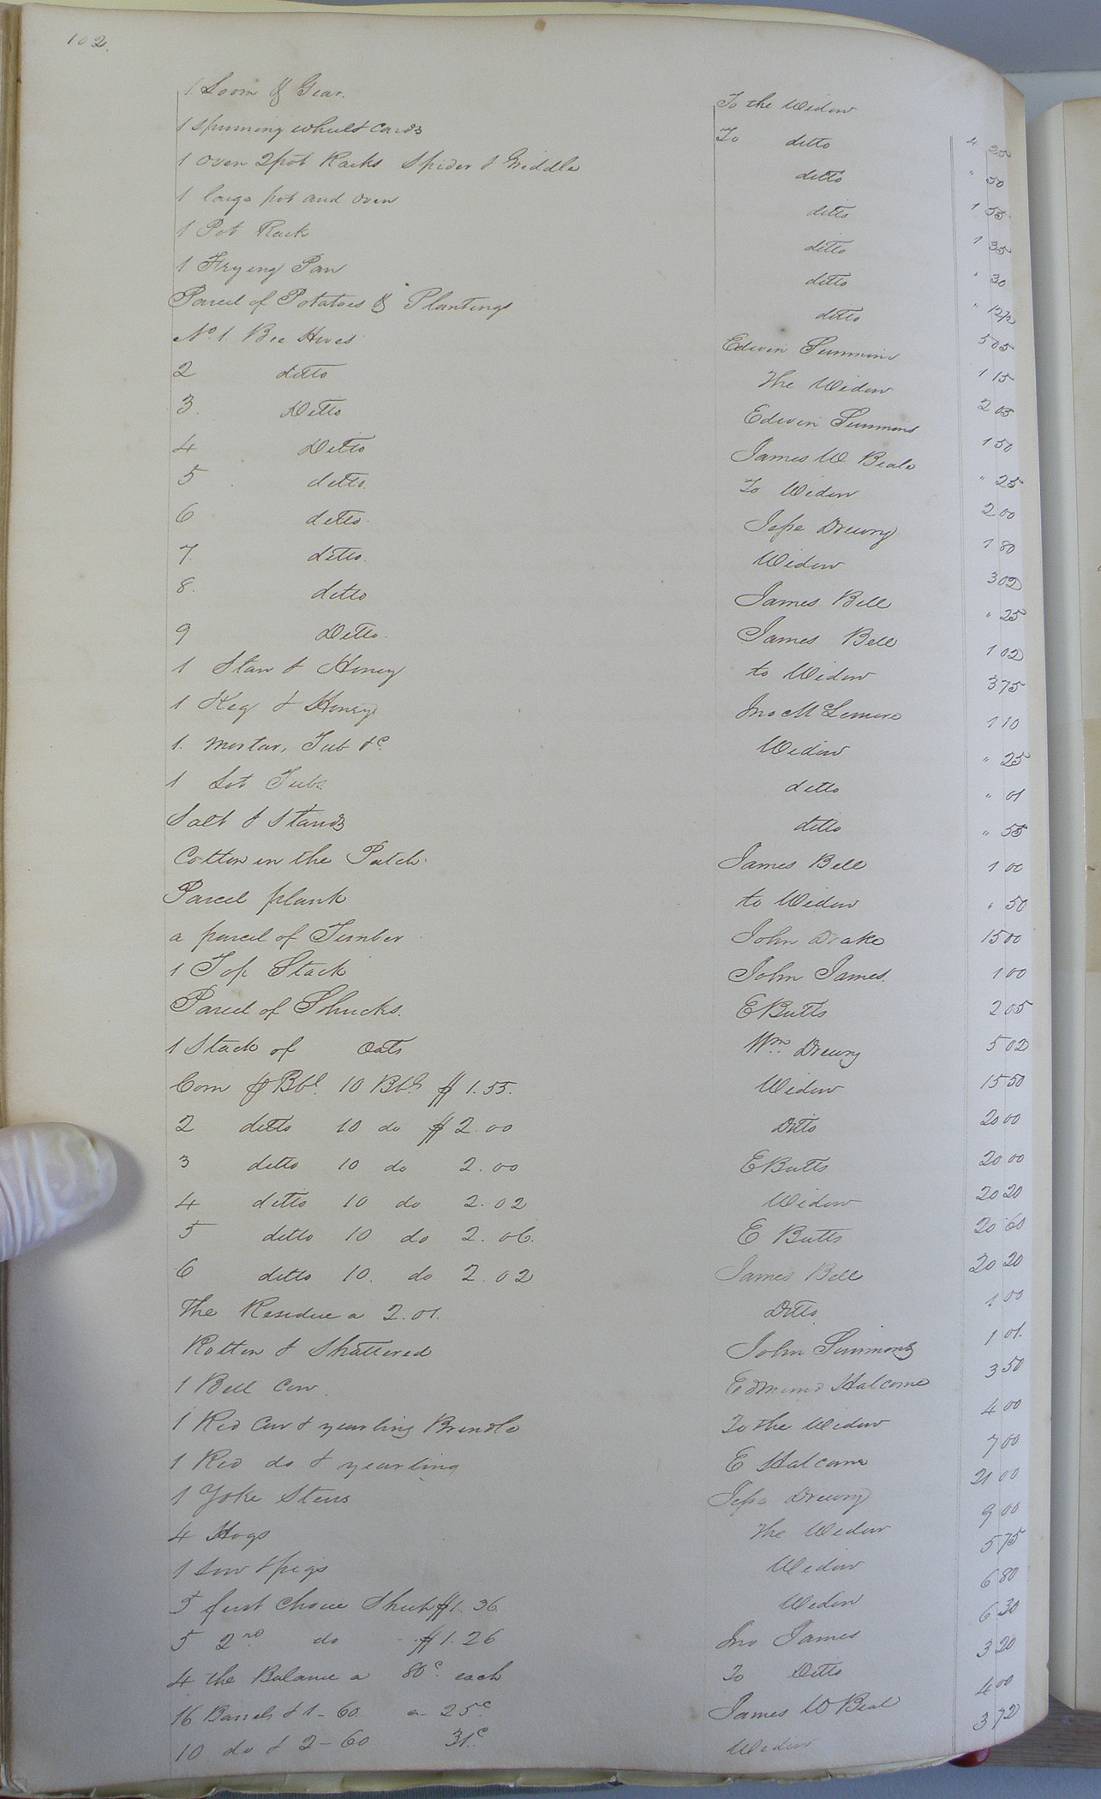 102.
1 Loom & Gear. To the Widow 4 25
1 Spinning wheel & Cards To ditto " 50
1 Oven 2 pot Racks Spider & Griddle ditto 1 55
1 large pot and Oven ditto 1 35
1 Pot Rack ditto " 30
1 Frying Pan ditto " 12½
Parcel of Potatoes & Plantings ditto 5 05
No. 1 Bee Hives Edwin Simmons 1 15
2 ditto The Widow 2 05
3. Ditto Edwin Simmons 1 50
4 Ditto James W Beale " 25
5 ditto. To Widow 2 00
6 ditto Jesse Drewry 1 80
7. ditto. Widow 3 02
8. ditto James Bell " 25
9 Ditto. James Bell 1 02
1 Stan & Honey to Widow 3 75
1 Keg & Honey Jno McLemore 1 10
1. Mortar, Tub &c Widow " 25
1 Lot Tubs ditto " 01
Salt & Stands ditto " 55
Cotton in the Patch. James Bell 1 00
Parcel plank to Widow " 50
a parcel of Timber John Drake 15 00
1 Top Stack John James. 1 00
Parcel of Shucks. E Butts 2 05
1 Stack of Oats Wm. Drewry 5 02
Corn Bbl. 10 Bbls $1.55. Widow 15 50
2 ditto 10 do $2.00 Ditto 20 00
3 ditto 10 do 2.00 E Butts 20 00
4 ditto 10 do 2.02 Widow 20 20
5 ditto 10 do 2.06. E Butts 20 60
6 ditto 10. do 2.02 James Bell 20 20
The Residue a 2.01. Ditto 00
Rotten & Shattered John Simmons 1 01.
1 Bell Cow. Edmund Halcome 3 50
1 Red Cow & yearling Brindle To the Widow 4 00
1 Red do & yearling E Halcome 7 00
1 Yoke Steers Jesse Drewry 21 00
4 Hogs The Widow 9 00
1 Sow & pigs Widow 5 75
5 first choice Sheep $1.36 Widow 6 80
5 2nd do $1.26 Jno James 6 30
4 the Balance a 80c. each To Ditto 3 20
16 Barrels & 1-60 a 25c James W Beal 4 00
10 do & 2-60 31c. Widow 3 72